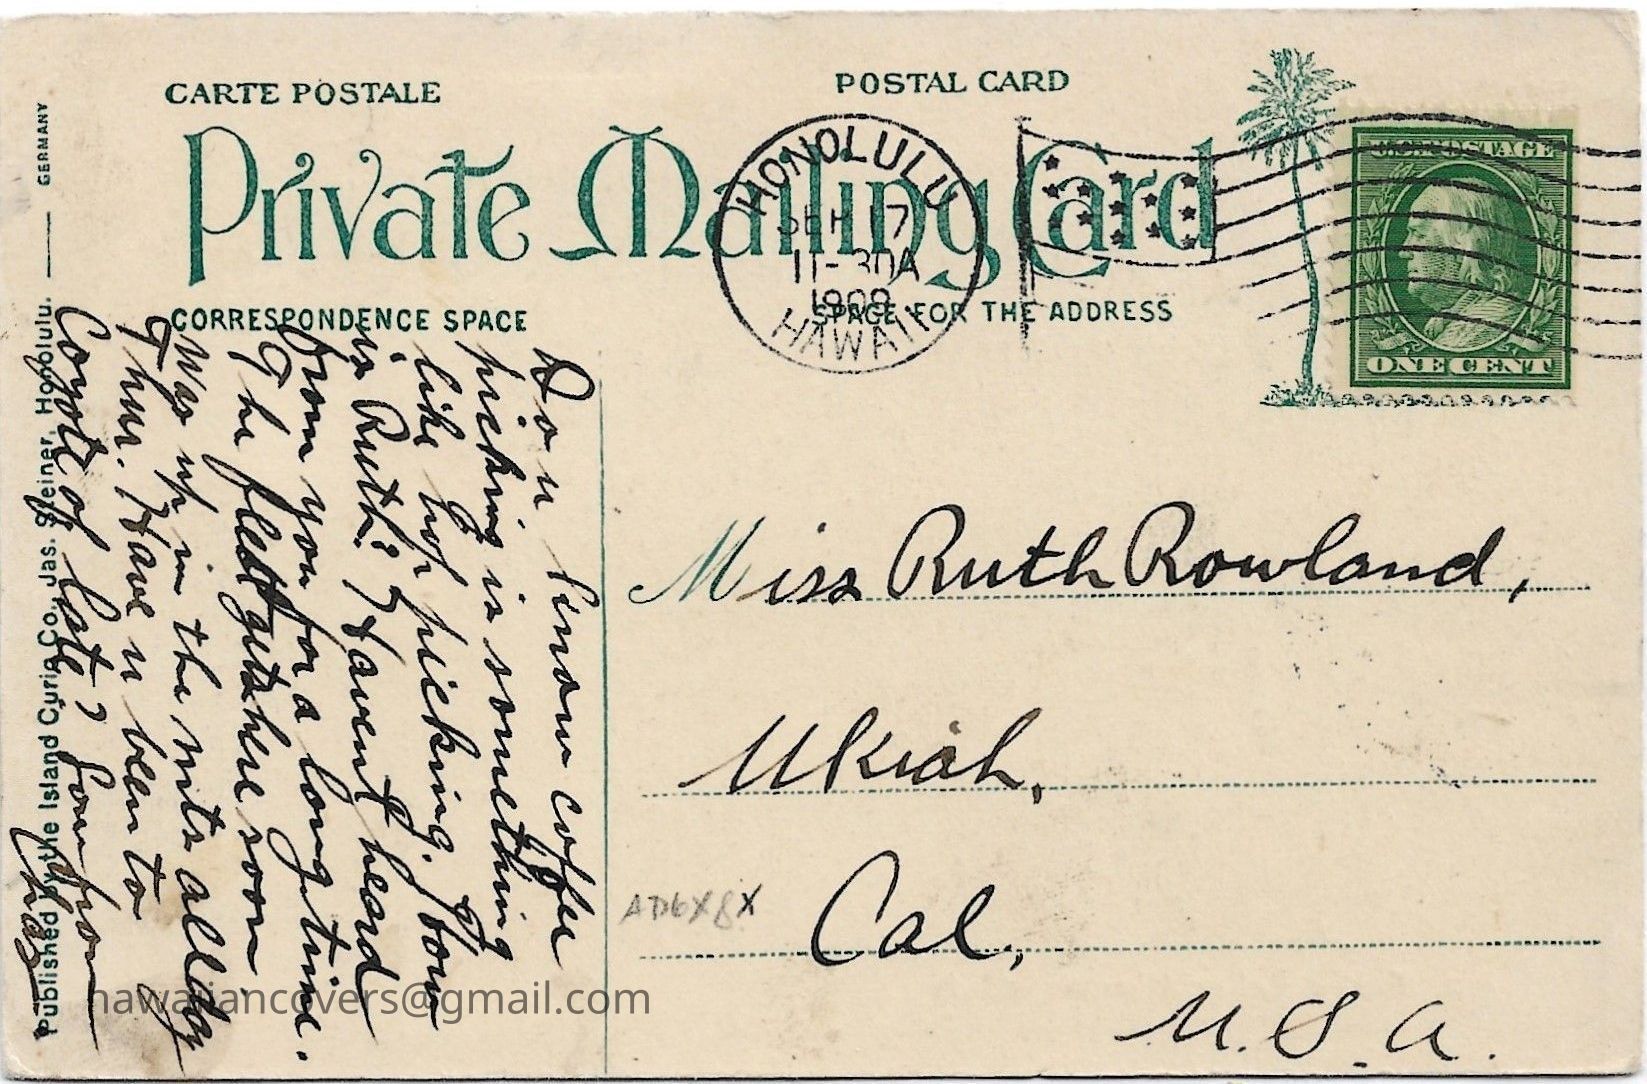 CARTE POSTALE
POSTAL CARD
Private Mailing Card
CORRESPONDENCE SPACE
SPACE FOR THE ADDRESS
HONOLULU
SEP 17
11-30A
1909
HAWAII
U.S. POSTAGE
ONE CENT
picking is something
like hop picking. How
is Ruth? Havent heard
from you for a long time.
The fleet gets here soon
Was up in the mts all day
Thur. Have u been to
Coyote of late?
Chas
Miss Ruth Rowland,
Ukiah,
Cal,
U.S.A.
AD6X8X
Published by the Island Curio Co., Jas. Steiner, Honolulu. GERMANY
hawaiiancovers@gmail.com